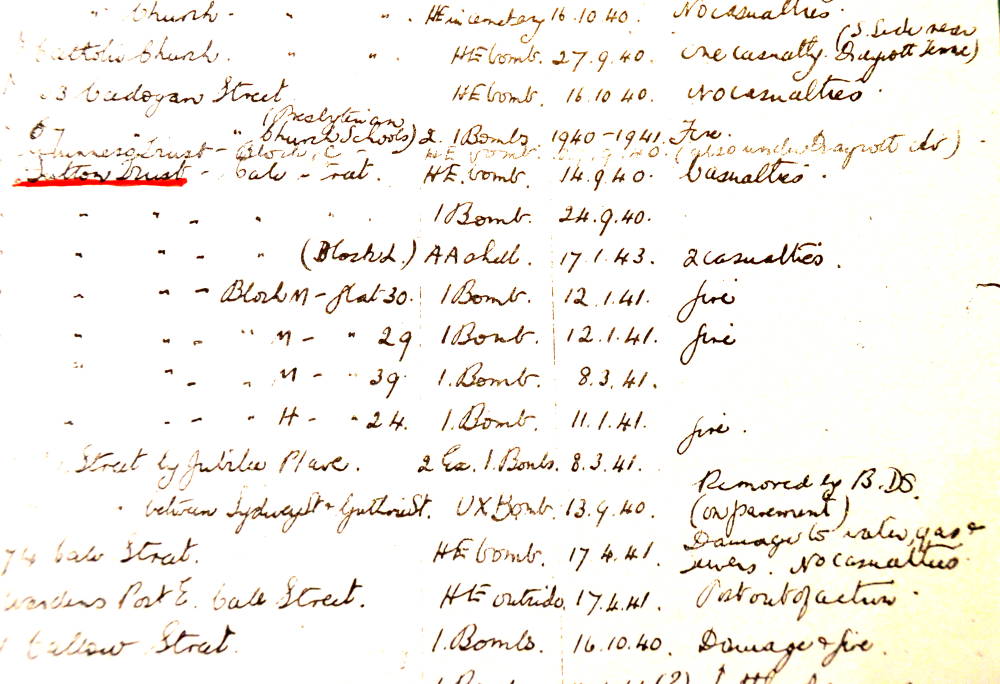 " Church - " " . HE in cemetery 16.10.40. No casualties.
Catholic Church. " " . HE bomb. 27.9.40. One casualty. (S. Side near Draycott Terrace)
63 Cadogan Street HE bomb. 16.10.40. No casualties.
67 " " (Presbyterian Church Schools) 2. I Bombs 1940-1941. Fire.
Guinness Trust - Block C HE bomb 9.40. (also under Draycott Av)
Sutton Trust - Cale - reet. HE. bomb. 14.9.40. Casualties.
" " - " " " . I Bomb. 24.9.40.
" " - " (Block L.) AA shell. 17.1.43. 2 casualties.
" " - Block M - flat 30. I Bomb. 12.1.41. fire
" " - " M - " 29 I Bomb. 12.1.41. fire
" " - " M - " 39 I. Bomb. 8.3.41.
" - - " H - " 24. I. Bomb. 11.1.41. fire.
Street by Jubilee Place. 2 Ex. I. Bombs. 8.3.41.
" between Sydney St & Guthrie St. UX Bomb. 13.9.40. Removed by B.D.S. (on pavement)
74 Cale Street. HE bomb. 17.4.41. Damage to water, gas & sewers. No casualties.
Wardens Post E. Cale Street. HE outside. 17.4.41. Post out of action.
Callow Street. I. Bombs. 16.10.40. Damage & fire.